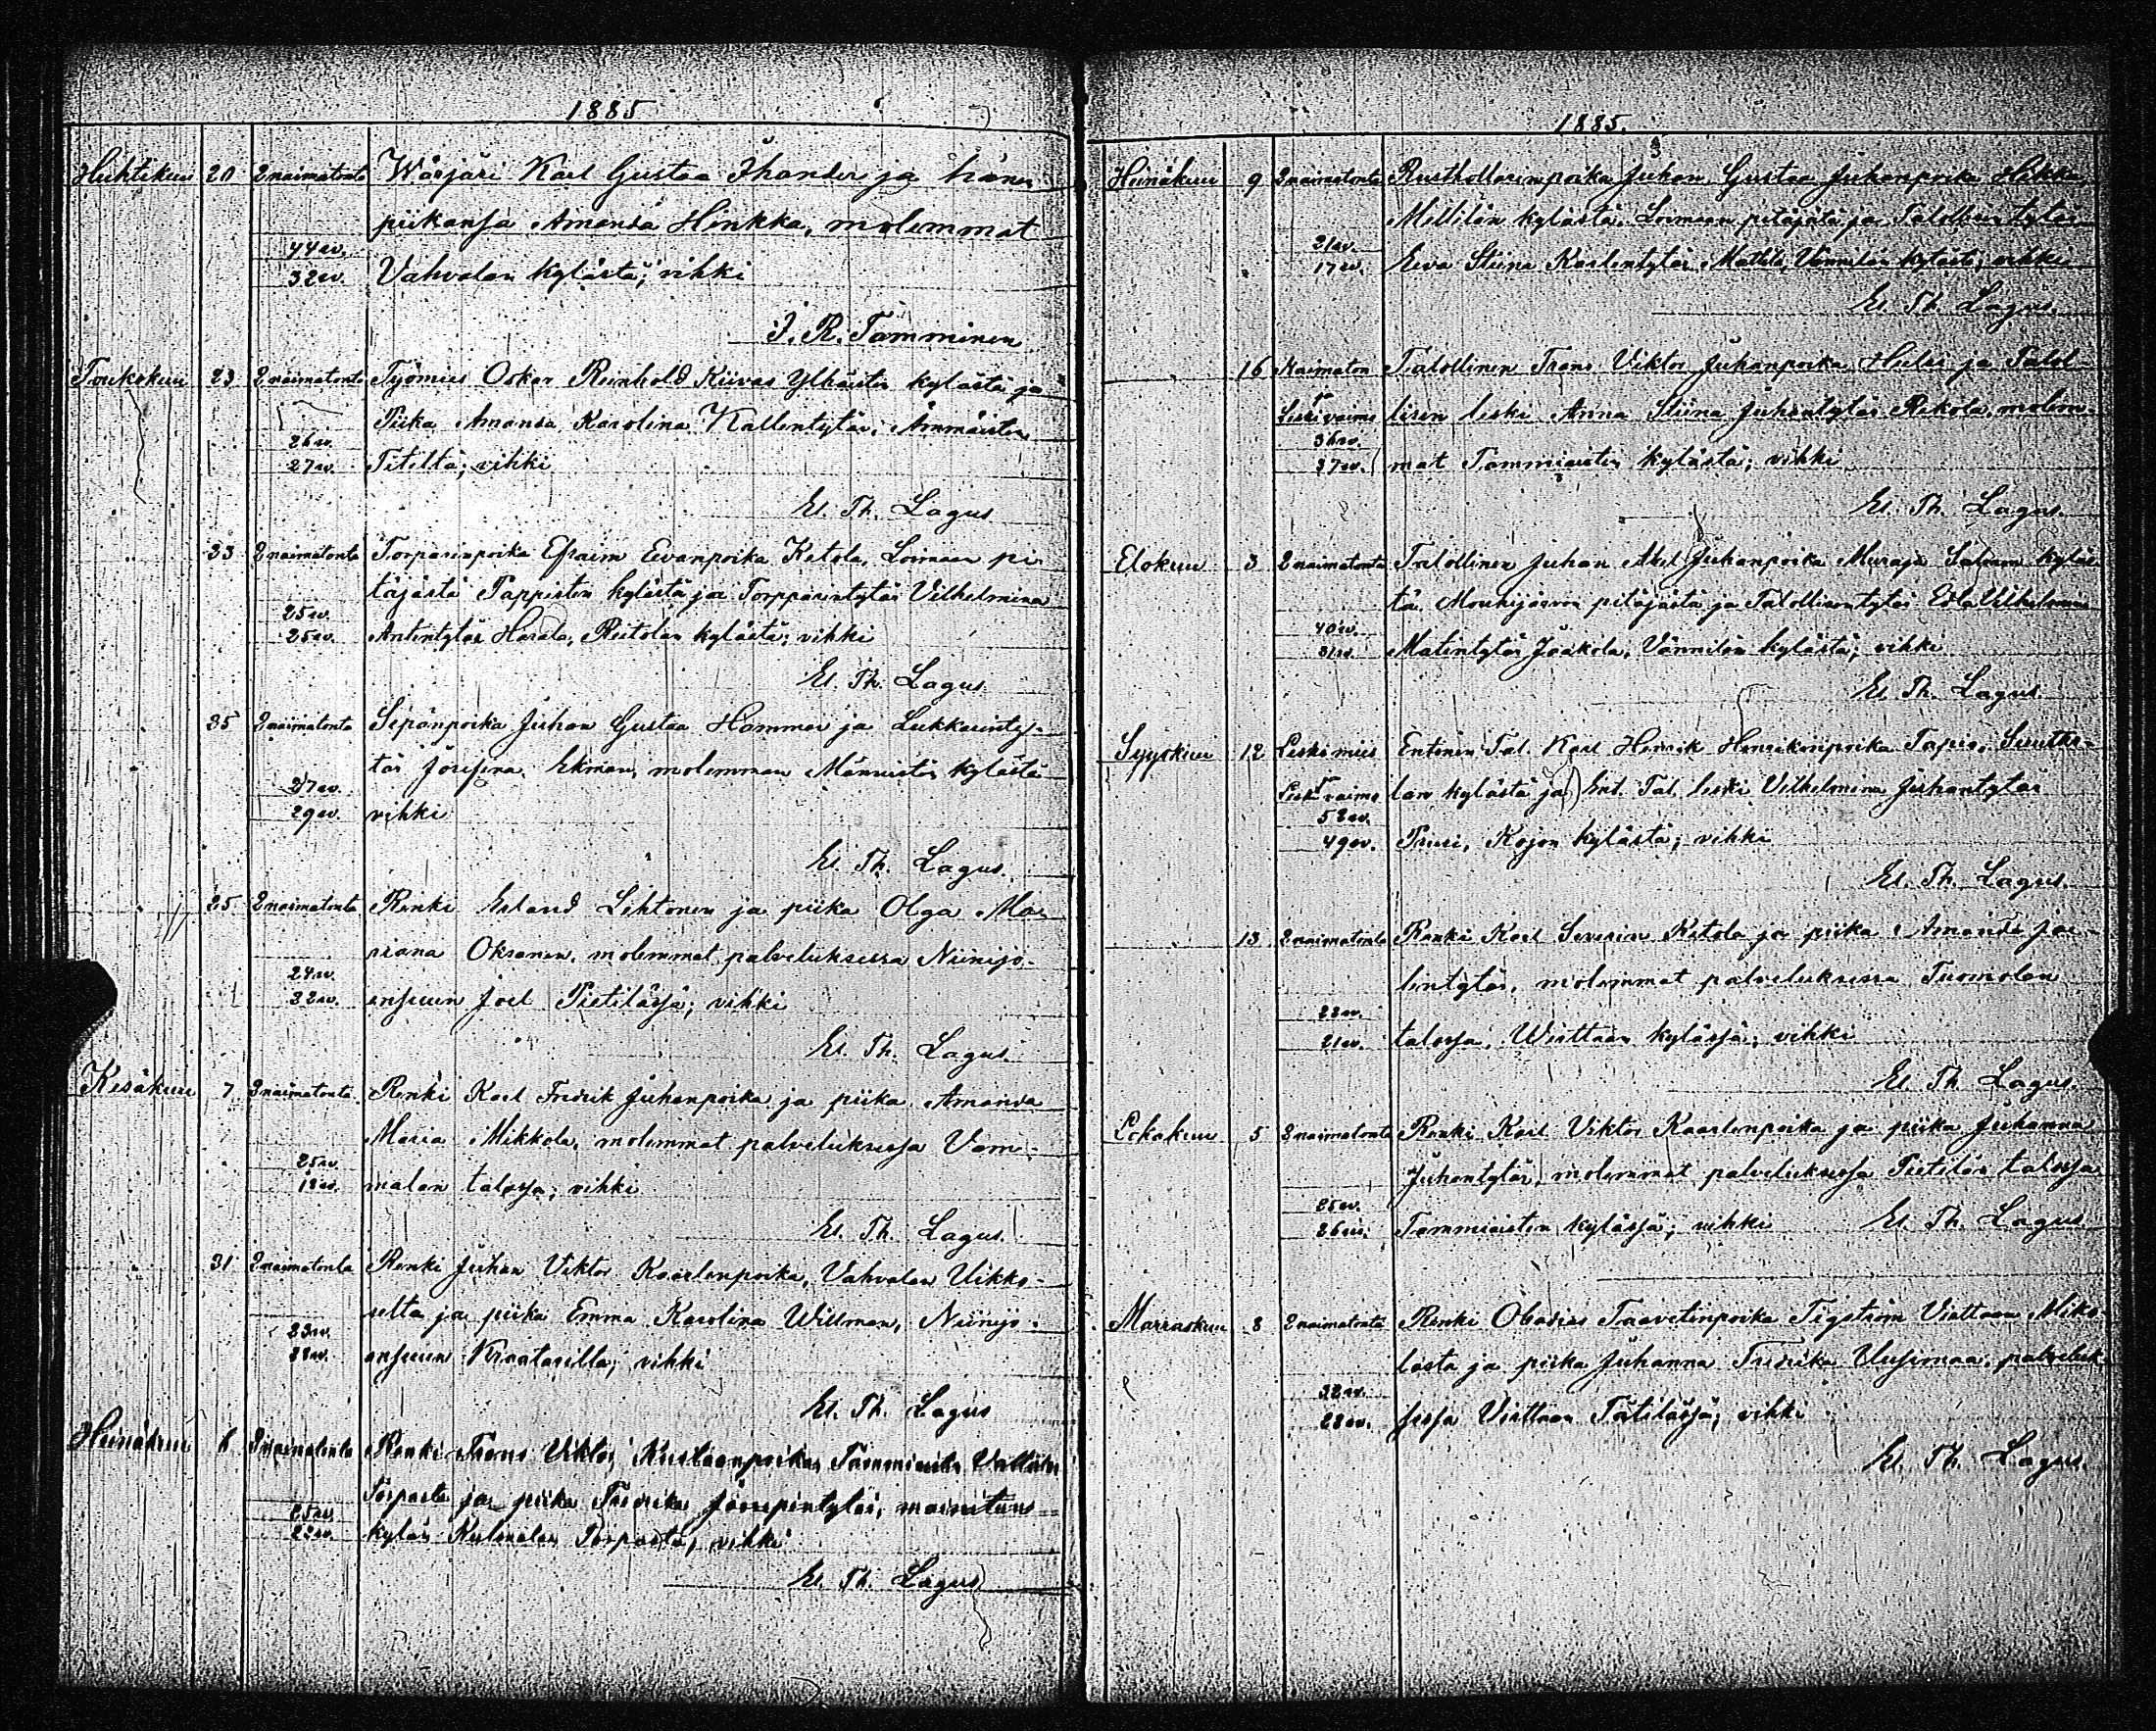 1885
Huhtikuu 20 2 naimatonta Wärjäri Karl Gustaa Ihander ja hänen
piikansa Amanda Hinkka, molemmat
44 v.
32 v. Vahvalan kylästä; vihki
J. R. Tamminen
Toukokuu 23 2 naimatonta Työmies Oskar Reinhold Kiivas Ylhäisten kylästä ja
Piika Amanda Karolina Kallentytär, Ämmäisten
26 v.
27 v. Titiltä; vihki
El. Th. Lagus
23 2 naimatonta Torparinpoika Efraim Eevanpoika Ketola, Loimaan pi-
täjästä Tappisten kylästä ja Torpparintytär Vilhelmina
25 v.
25 v. Antintytär Harala, Ristolan kylästä; vihki
El. Th. Lagus
25 2 naimatonta Sepänpoika Juhan Gustaa Hammar ja Lukkarinty-
tär Josefina Ekman, molemman Männistön kylästä
27 v.
29 v. vihki
El. Th. Lagus
25 2 naimatonta Renki Erland Lehtonen ja piika Olga Ma-
riana Oksanen, molemmat palveluksessa Niinijo-
24 v.
22 v. ensuun Joel Pietilässä; vihki
El. Th. Lagus
Kesäkuu 7 2 naimatonta Renki Karl Fredrik Juhanpoika ja piika Amanda
Maria Mikkola, molemmat palveluksessa Vam-
25 v.
malan talossa; vihki
El. Th. Lagus
21 2 naimatonta Renki Juhan Viktor Kaarlenpoika, Vahvalan Uikko-
selta ja piika Emma Karolina Willman, Niinijo-
23 v.
ensuun Kraatarilla; vihki
El. Th. Lagus
Heinäkuu 6 2 naimatonta Renki Frans Viktor Kustaanpoika Tammiaisten
Torpasta ja piika Fredrika Joosepintytär, mainitun
25 v.
22 v. kylän Kulmalan Torpasta; vihki
El. Th. Lagus
1885.
Heinäkuu 9 2 naimatonta Rusthollarinpoika Juhan Gustaa Juhanpoika Heikka,
Mellilän kylästä, Loimaan pitäjästä ja Talollisentytär
21 v.
17 v. Eeva Stiina Kaarlentytär Mattila, Vännilän kylästä; vihki
El. Th. Lagus.
16 Naimaton Talollinen Frans Viktor Juhanpoika Heilä ja Talol-
ja
Leskivaimo lisen leski Anna Stiina Juhontytär Rekola, molem-
36 v.
37 v. mat Tammiaisten kylästä; vihki
El. Th. Lagus.
Elokuu 3 2 naimatonta Talollinen Juhan Abel Juhanpoika Muraja Salmen kyläs-
tä Mouhijärven pitäjästä ja Talollisentytär Eeda Vilhelmina
40 v.
31 v. Matintytär Jaakola, Vännilän kylästä; vihki
El. Th. Lagus
Syyskuu 12 Leskimies Entinen Tal. Karl Henrik Henrikinpoika Tapio, Suutti-
ja
Leskivaimo lan kylästä ja Ent. Tal. leski Vilhelmina Juhantytär
52 v.
49 v. Priusi, Kojon kylästä; vihki
El. Th. Lagus.
13 2 naimatonta Renki Karl Severin Ketola ja piika Amanda Joe-
lintytär, molemmat palveluksessa Tuomolan
22 v.
21 v. talossa, Wirttaan kylässä; vihki
El. Th. Lagus.
Lokakuu 5 2 naimatonta Renki Karl Viktor Kaarlenpoika ja piika Juhanna
Juhantytär, molemmat palveluksessa Pietilän talossa
25 v.
26 v. Tammiaisten kylässä; vihki El. Th. Lagus
Marraskuu 8 2 naimatonta Renki Obadias Taavetinpoika Tigström Virttaan Miko-
lasta ja piika Juhanna Fredrika Uusimaa, palveluk-
32 v.
28 v. sessa Virttaan Pärtilässä; vihki
El. Th. Lagus.